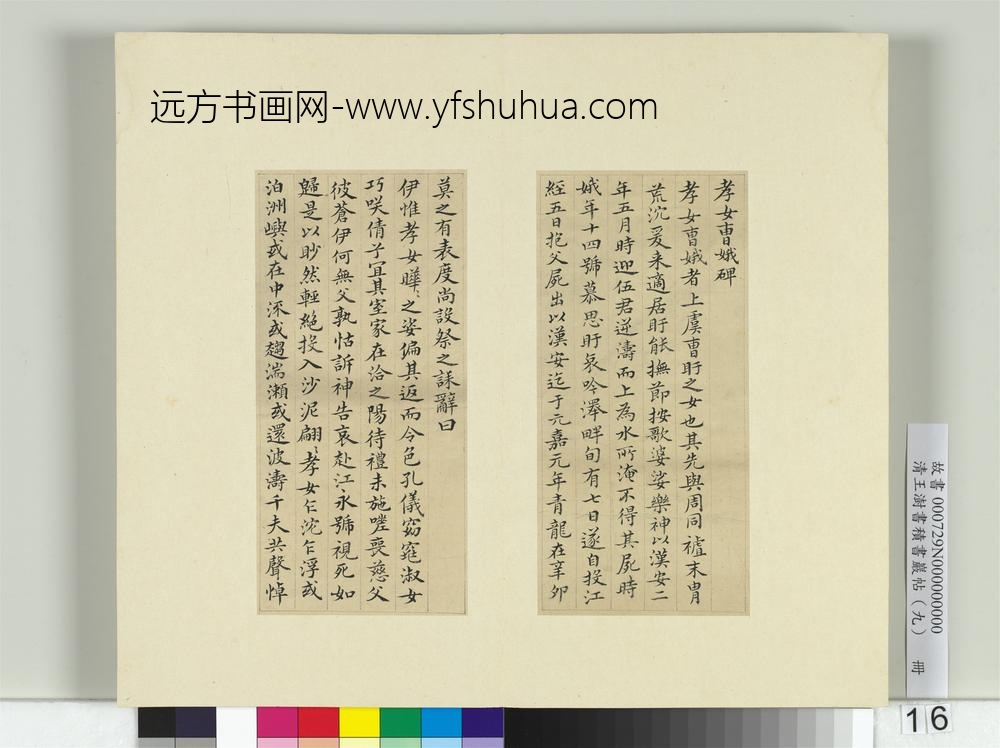 远方书画网-www.yfshuhua.com
孝女曹娥碑
孝女曹娥者上虞曹盱之女也其先與周同祖末胄
荒沉爰来適居盱能撫節按歌婆娑樂神以漢安二
年五月時迎伍君逆濤而上為水所淹不得其屍時
娥年十四號慕思盱哀吟澤畔旬有七日遂自投江
經五日抱父屍出以漢安迄于元嘉元年青龍在辛卯
莫之有表度尚設祭之誄辭曰
伊惟孝女曄〻之姿偏其返而令色孔儀窈窕淑女
巧咲倩子宜其室家在洽之陽待禮未施嗟喪慈父
彼蒼伊何無父孰怙訴神告哀赴江永號視死如
歸是以眇然輕絕投入沙泥翩〻孝女乍沈乍浮或
泊洲嶼或在中流或趨湍瀨或還波濤千夫共聲悼
故書 000729N000000000
清王澍書積書巖帖（九） 冊
16